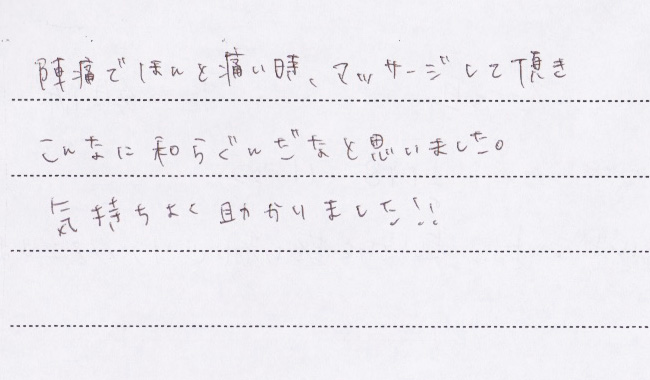 陣痛でほんと痛い時、マッサージして頂き
こんなに和らぐんだなと思いました。
気持ちよく助かりました!!